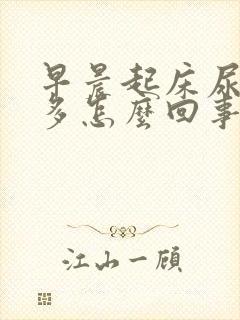 早晨起床尿
多怎麼回事
江山一顧